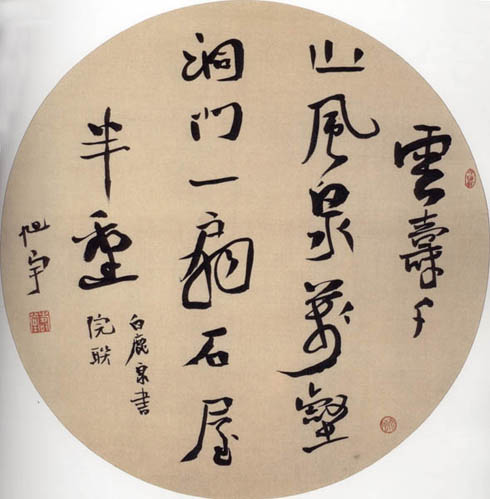 雲壽千
山風泉萬壑
洞門一扇石屋
半
白鹿泉書
院联
旭宇